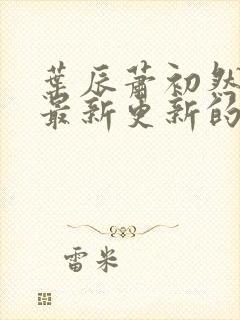 葉辰蕭初然
最新更新的
雷米